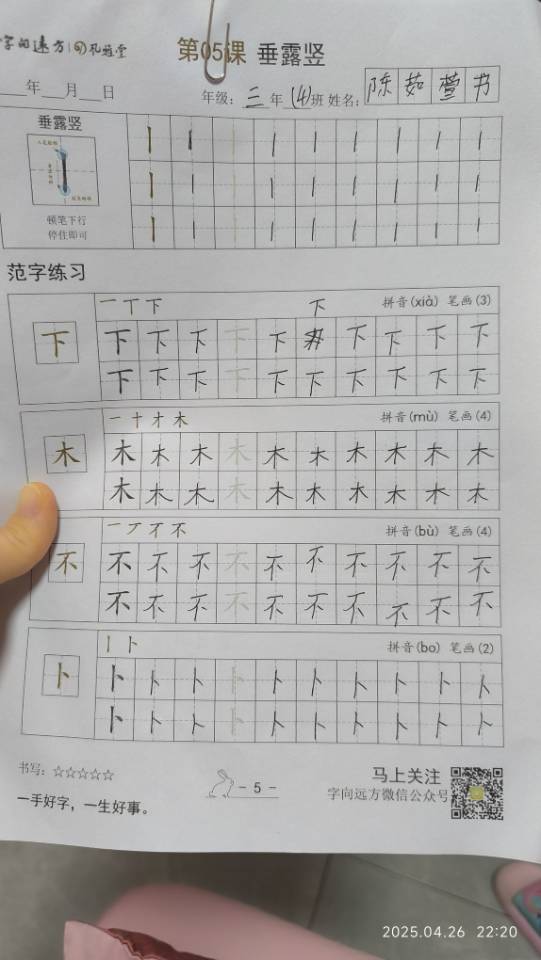 字向远方
第05课 垂露竖
年 月 日
年级：三年(4)班 姓名：陈茹萱书
垂露竖
顿笔下行
停住即可
范字练习
一丅下 下 拼音(xià) 笔画(3)
下 下 下 下 下 下 下 下 下 下 下
下 下 下 下 下 下 下 下 下 下
一十才木 拼音(mù) 笔画(4)
木 木 木 木 木 木 木 木 木 木 木
木 木 木 木 木 木 木 木 木 木
一丆不不 拼音(bù) 笔画(4)
不 不 不 不 不 不 不 不 不 不 不
不 不 不 不 不 不 不 不 不 不
丨卜 拼音(bo) 笔画(2)
卜 卜 卜 卜 卜 卜 卜 卜 卜 卜 卜
卜 卜 卜 卜 卜 卜 卜 卜 卜 卜
书写：☆☆☆☆☆
一手好字，一生好事。
- 5 -
马上关注
字向远方微信公众号
2025.04.26 22:20